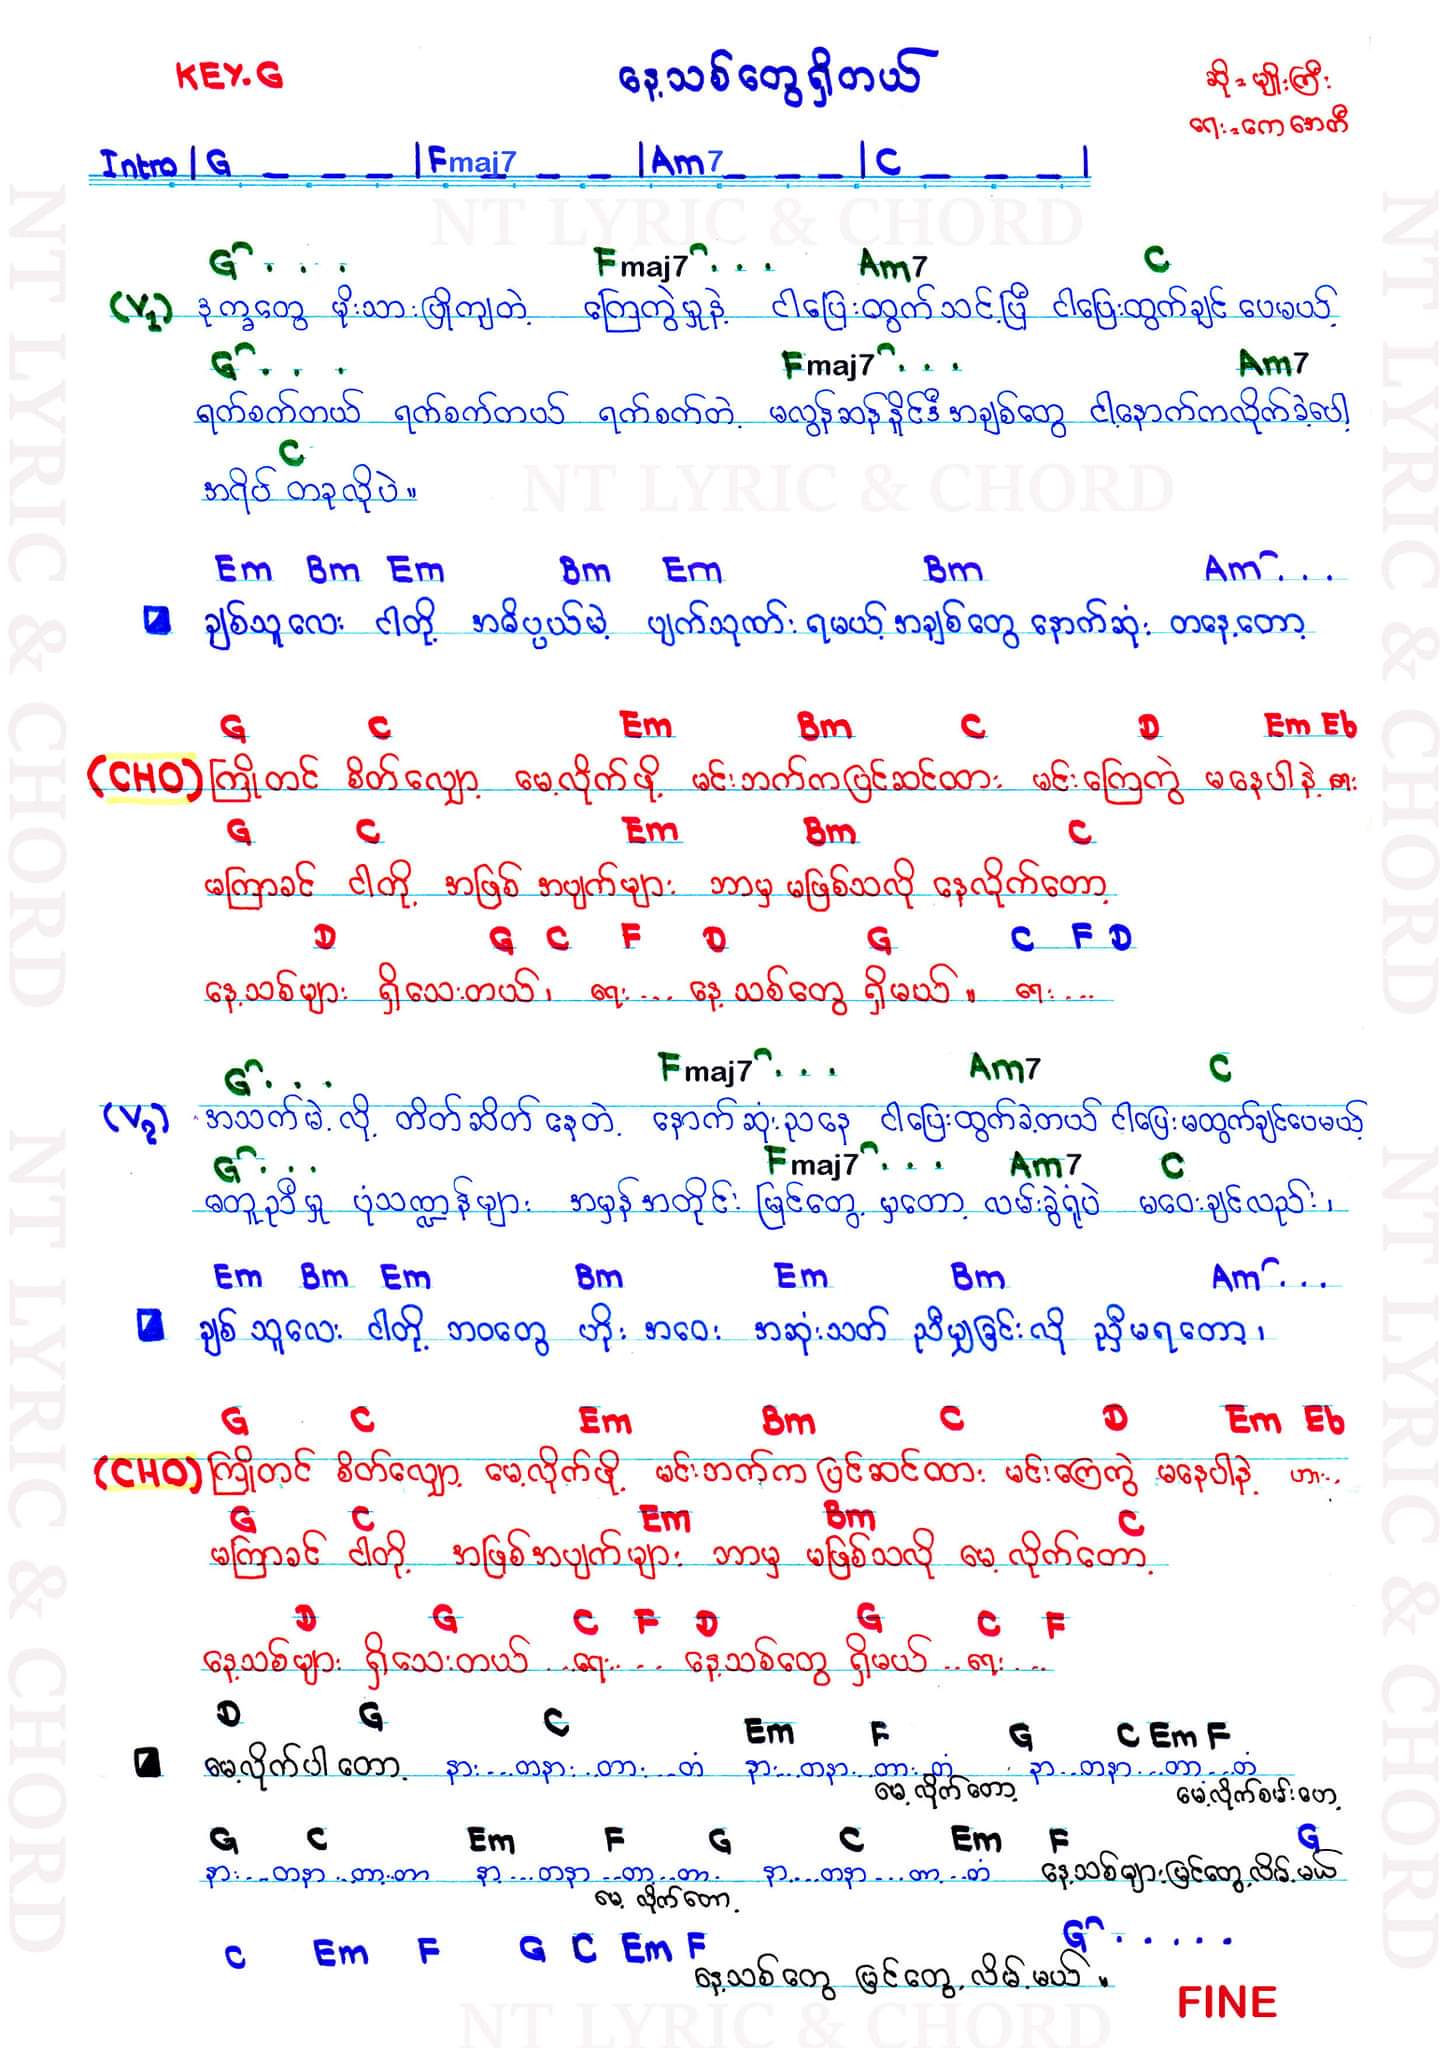 KEY.G
နေ့သစ်တွေရှိတယ်
ဆို = မျိုးကြီး
ရေး = ကေအေတီ
Intro | G _ _ _ | Fmaj7 _ _ _ | Am7 _ _ _ | C _ _ _ |
NT LYRIC & CHORD
G . . . Fmaj7 . . . Am7 C
(V1) ဒုက္ခတွေ မိုးသားဖြိုကျတဲ့ ကြေကွဲမှုနဲ့ ငါပြေးထွက်သင့်ပြီ ငါပြေးထွက်ချင်ပေမယ့်
G . . . Fmaj7 . . . Am7
ရက်စက်တယ် ရက်စက်တယ် ရက်စက်တဲ့ မလွန်ဆန်နိုင်ဒီအချစ်တွေ ငါ့နောက်ကလိုက်ခဲ့ပေါ့
C
အရိပ်တခုလိုပဲ။
NT LYRIC & CHORD
Em Bm Em Bm Em Bm Am . . .
ချစ်သူလေး ငါတို့ အဓိပ္ပယ်မဲ့ ပျက်သုဏ်းရမယ့်အချစ်တွေ နောက်ဆုံး တနေ့တော့
G C Em Bm C D Em Eb
(CHO) ကြိုတင် စိတ်လျှော့ မေ့လိုက်ဖို့ မင်းဘက်ကပြင်ဆင်ထား မင်းကြေကွဲ မနေပါနဲ့
G C Em Bm C
မကြာခင် ငါတို့ အဖြစ်အပျက်များ ဘာမှ မဖြစ်သလို နေလိုက်တော့
D G C F D G C F D
နေ့သစ်များ ရှိသေးတယ်၊ ရေး... နေ့သစ်တွေ ရှိမယ်။ ရေး...
G . . . Fmaj7 . . . Am7 C
(V2) အသက်မဲ့လို့ တိတ်ဆိတ်နေတဲ့ နောက်ဆုံးညနေ ငါပြေးထွက်ခဲ့တယ် ငါပြေးမထွက်ချင်ပေမယ့်
G . . . Fmaj7 . . . Am7 C
မတူညီမှု ပုံသဏ္ဍန်များ အမှန်အတိုင်း မြင်တွေ့မှတော့ လမ်းခွဲရုံပဲ မဝေးချင်လည်း၊
Em Bm Em Bm Em Bm Am . . .
ချစ်သူလေး ငါတို့ ဘဝတွေ ဟိုးအဝေး အဆုံးသတ် ညီမျှခြင်းလို ညှိမရတော့၊
G C Em Bm C D Em Eb
(CHO) ကြိုတင် စိတ်လျှော့ မေ့လိုက်ဖို့ မင်းဘက်က ပြင်ဆင်ထား မင်းကြေကွဲ မနေပါနဲ့ ဟား..
G C Em Bm C
မကြာခင် ငါတို့ အဖြစ်အပျက်များ ဘာမှ မဖြစ်သလို မေ့လိုက်တော့
D G C F D G C F
နေ့သစ်များ ရှိသေးတယ် ...ရေး... နေ့သစ်တွေ ရှိမယ် ..ရေး...
D G C Em F G C Em F
မေ့လိုက်ပါတော့ နား...တနား..တား...တံ နား...တနာ..တား..တံ နာ...တနာ...တာ...တံ
မေ့လိုက်တော့ မေ့လိုက်စမ်းဟေ့
G C Em F G C Em F G
နား...တနာ..တာ..တာ နာ....တနာ...တာ...တာ. နာ....တနာ...တာ..တံ နေ့သစ်များမြင်တွေ့လိမ့်မယ်
မေ့လိုက်တော့
C Em F G C Em F G . . . . .
နေ့သစ်တွေ မြင်တွေ့လိမ့်မယ်။
FINE
NT LYRIC & CHORD
NT LYRIC & CHORD NT LYRIC & CHORD
NT LYRIC & CHORD NT LYRIC & CHORD